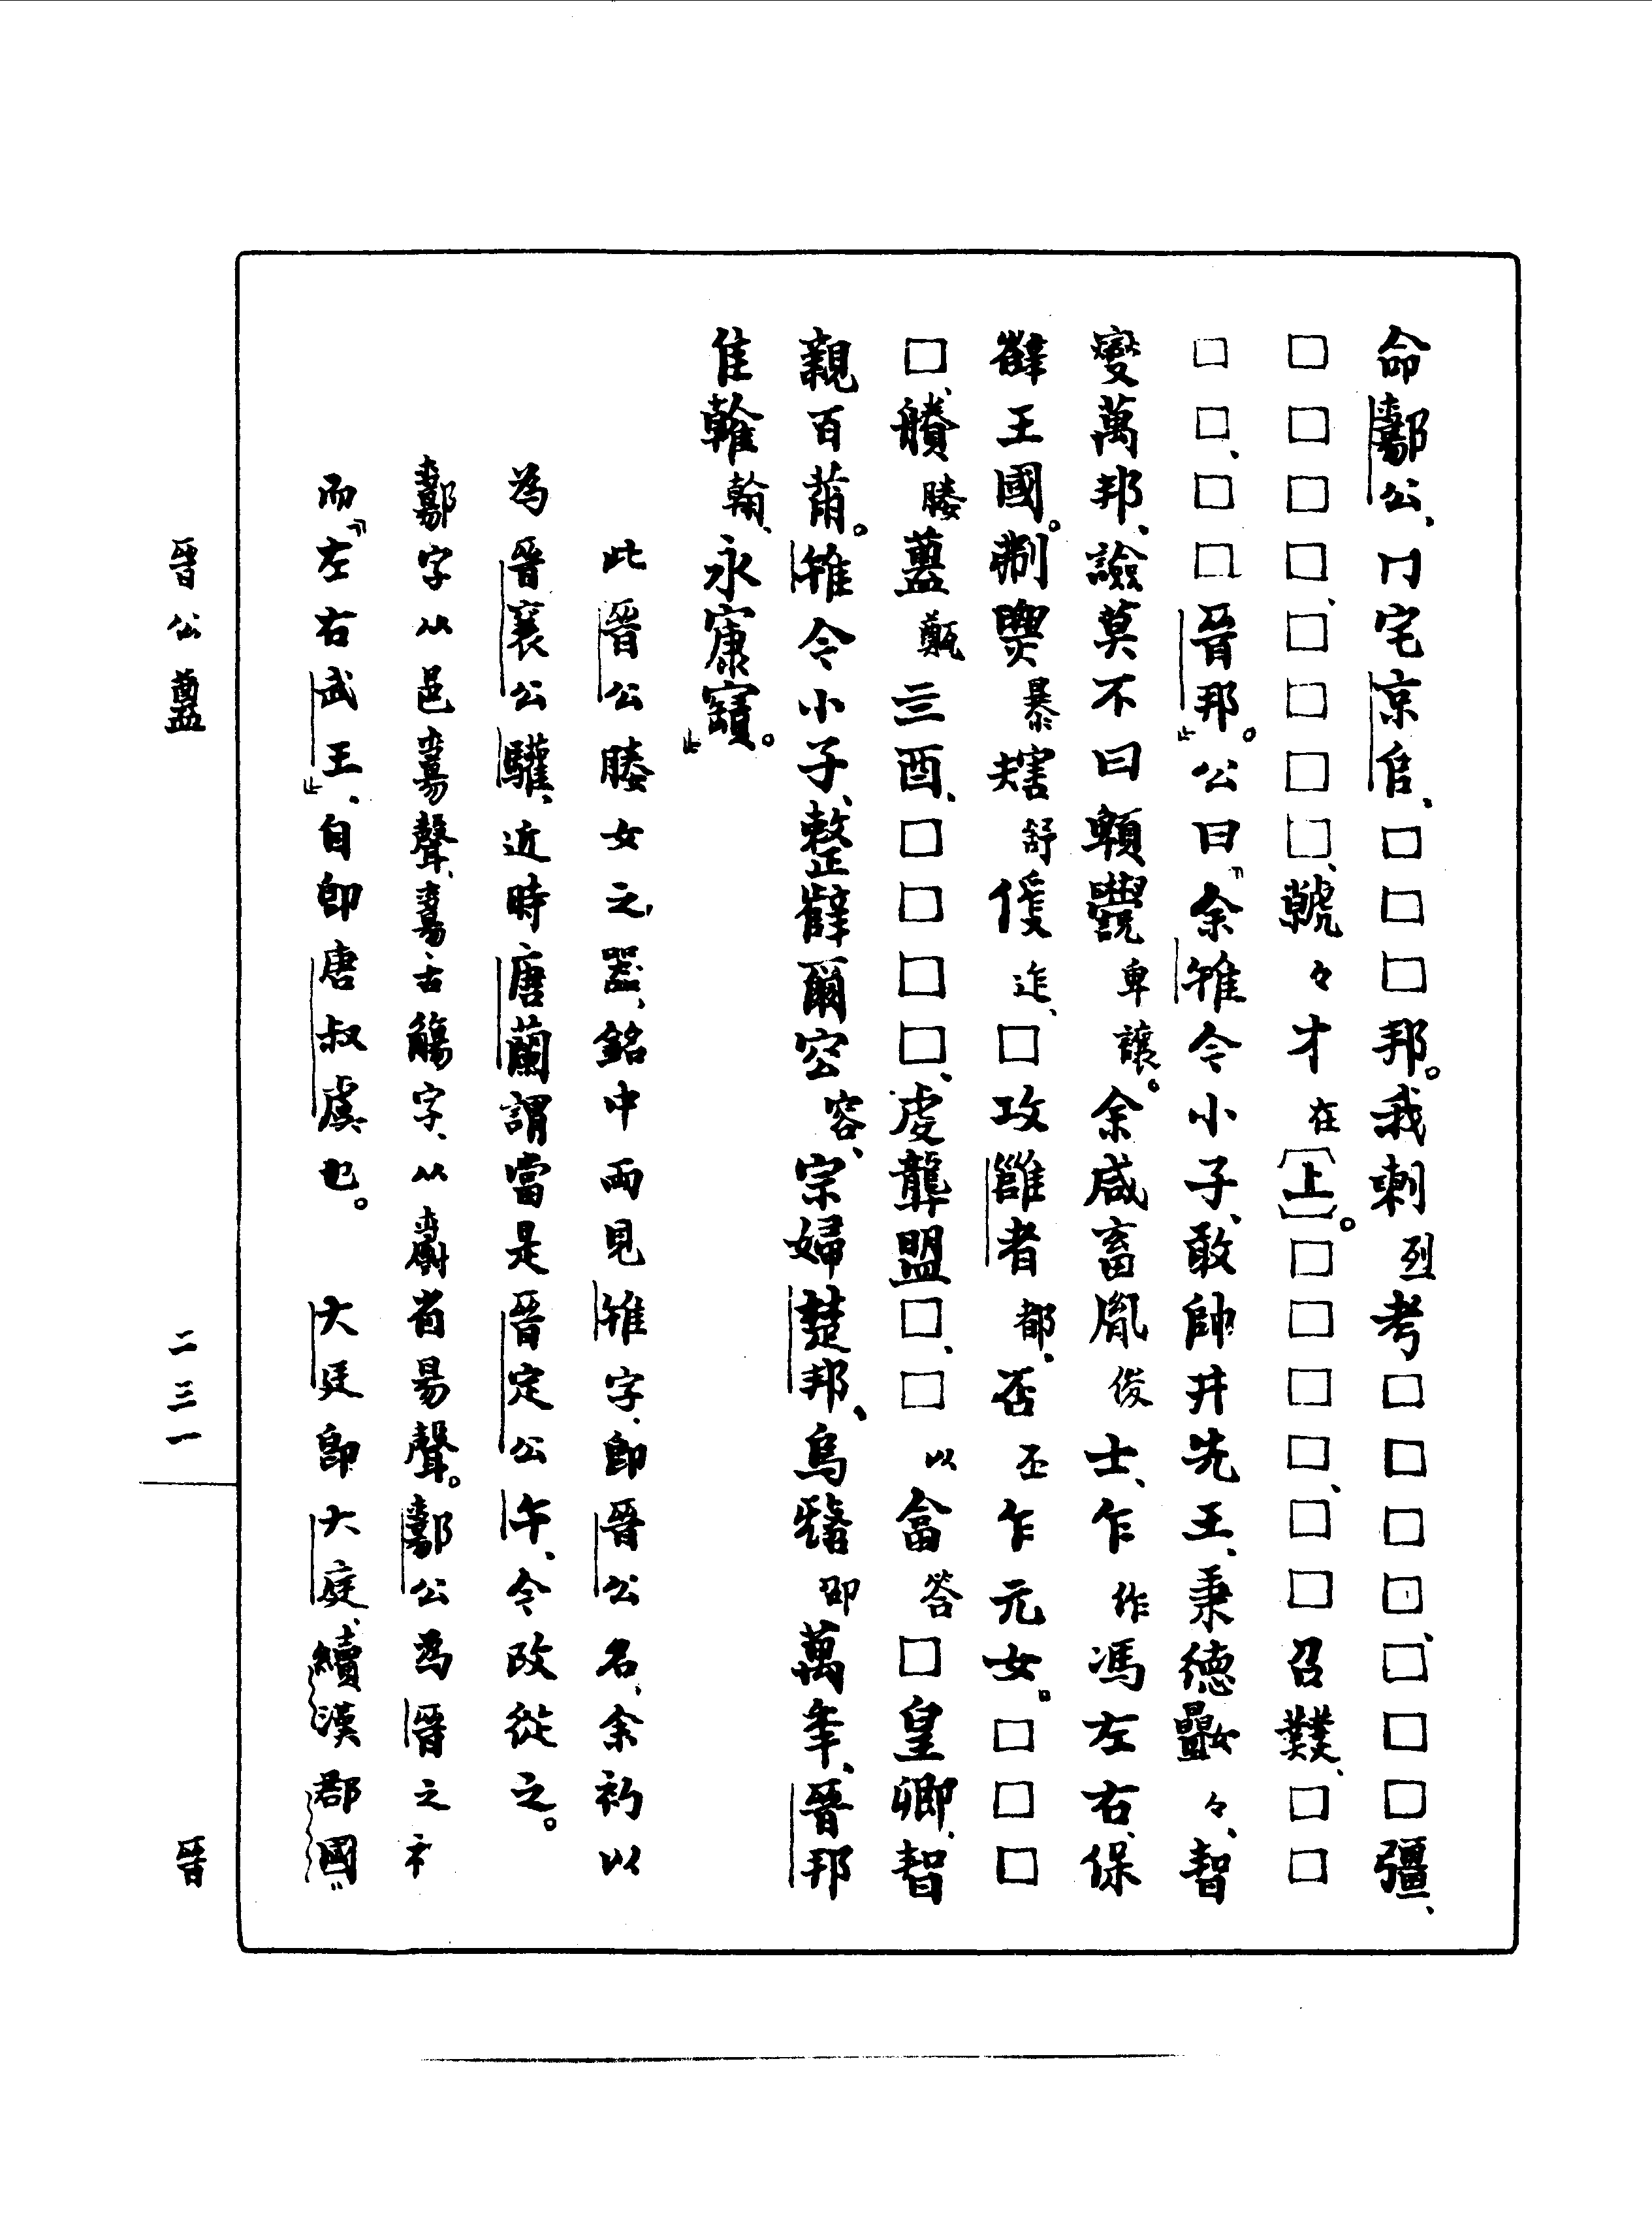 命鄀公、冂宅京𠂤、□□□邦。我剌烈考□□□□、□□□彊、
□□□□、□□□□、虩々才在〔上〕。□□□□、□□召𢍣、□□
□□、□□晉邦。」公曰「余雉今小子、敢帥井先王、秉德𡤐々、智
燮萬邦、諭莫不曰頼𩁹卑讓。余咸畜胤俊士、乍作馮左右、保
辥王國。刜㬥暴𦎫舒㑥迮、□攻雝者都、否丕乍元女。□□□
□、賸媵𥂴甗亖酉、□□□□、虔龏盟□、□以畣答□皇卿、智
親百黹。雉今小子、整辥爾容容、宗婦楚邦、烏𣉻卲萬年、晉邦
隹雗翰、永康寶。」
此晉公媵女之器、銘中兩見雉字、卽晉公名、余初以
為晉襄公驩、近時唐蘭謂當是晉定公午、今改從之。
字从邑聲、古觴字、从省昜聲。公為晉之
而「左右武王」、自卽唐叔虞也。　大廷卽大庭、續漢郡國
晉公𥂴　二三一　晉